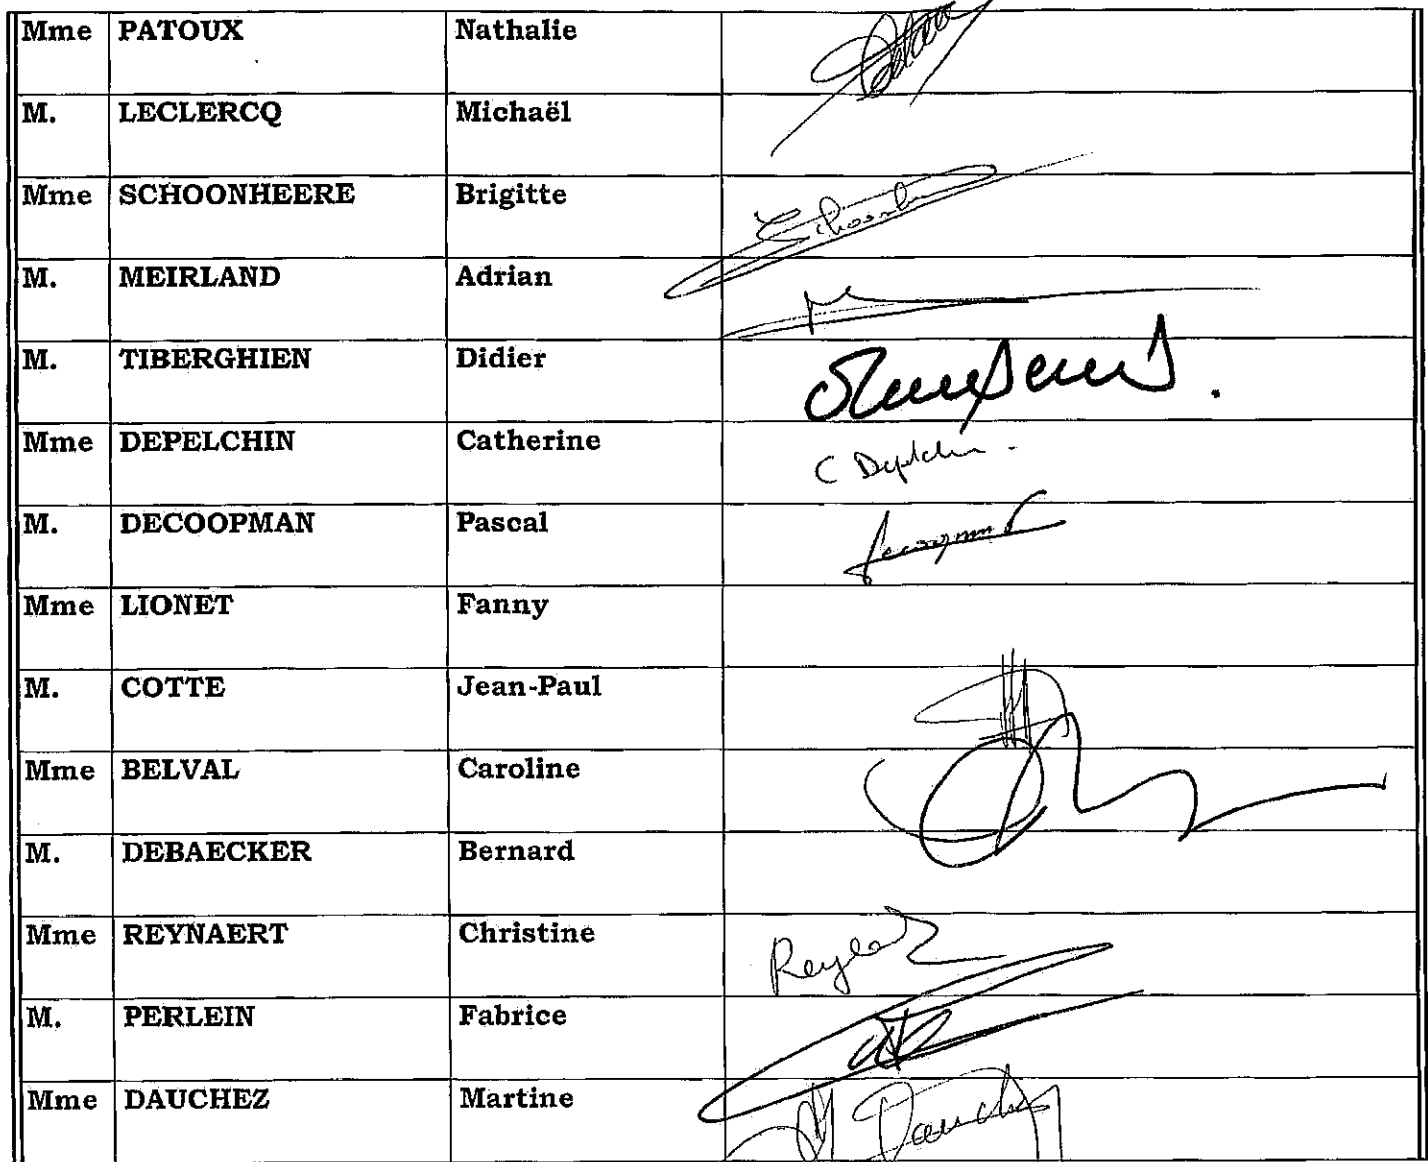 Mme PATOUX Nathalie
M. LECLERCQ Michaël
Mme SCHOONHEERE Brigitte
M. MEIRLAND Adrian
M. TIBERGHIEN Didier
Mme DEPELCHIN Catherine
C Depelchin
M. DECOOPMAN Pascal
Mme LIONET Fanny
M. COTTE Jean-Paul
Mme BELVAL Caroline
M. DEBAECKER Bernard
Mme REYNAERT Christine
M. PERLEIN Fabrice
Mme DAUCHEZ Martine